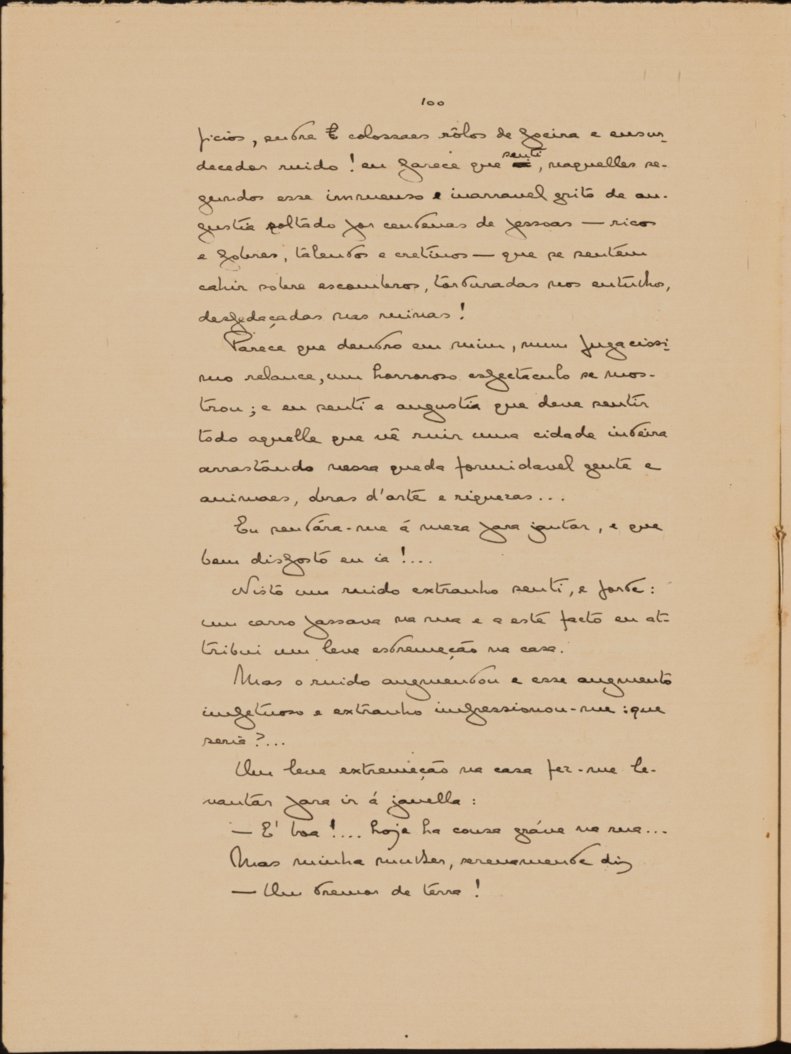 100
ficios, entre colossaes rôlos de poeira e ensur-
decedor ruido! eu parece que senti, naquelles se-
gundos esse immenso e inarravel grito de an-
gustia soltado por centenas de pessoas — ricos
e pobres, talentos e cretinos — que se sentem
cahir sobre escombros, torturadas nos entulhos,
despedaçadas nas ruinas!
Parece que dentro em mim, num fugacissi-
mo relance, um horroroso espectaculo se mos-
trou; e eu senti a angustia que deve sentir
todo aquelle que vê ruir uma cidade inteira
arrastando nessa queda formidavel gente e
animaes, obras d'arte e riquezas...
Eu sentára-me á meza para jantar, e que
bem disposto eu ia!...
Nisto um ruido extranho senti, e forte:
um carro passava na rua e a este facto eu at-
tribui um leve estremeção na casa.
Mas o ruido augmentou e esse augmento
impetuoso e extranho impressionou-me: que
seria?...
Um leve extremeção na casa fez-me le-
vantar para ir á janella:
— E' boa!... hoje ha cousa gráve na rua...
Mas minha mulher, serenamente diz
— Um tremor de terra!